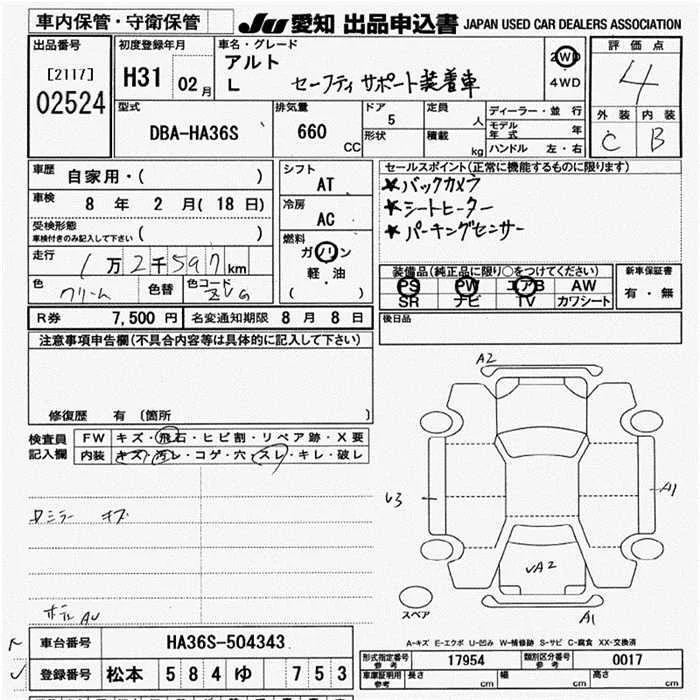 車内保管・守衛保管 JU 愛知 出品申込書 JAPAN USED CAR DEALERS ASSOCIATION
出品番号
[2117]
02524
初度登録年月
H31 02月
車名・グレード
アルト
L セーフティ サポート装着車
2WD
4WD
評価点
4
外装 内装
C B
型式
DBA-HA36S
排気量
660 CC
ドア
5
形状
定員
人
積載
kg
ディーラー・並行
モデル年式 年
ハンドル 左・右
車歴 自家用・( )
車検 8年 2月(18日)
受検形態
車検付きのみ記入して下さい ( )
走行 1万2千597km
色 クリーム 色替 色コード ZVG
シフト
AT
冷房
AC
燃料
ガソリン
軽・油
( )
セールスポイント(正常に機能するものに限ります)
★バックカメラ
★シートヒーター
★パーキングセンサー
装備品(純正品に限り○をつけてください)
PS PW エアB AW
SR ナビ TV カワシート
新車保証書
有・無
R券 7,500円 名変通知期限 8月 8日
後日品
注意事項申告欄(不具合内容等は具体的に記入して下さい)
修復歴 有 (箇所 )
検査員記入欄
FW キズ・飛石・ヒビ割・リペア跡・X要
内装 キズ・汚レ・コゲ・穴・スレ・キレ・破レ
ミラー キズ
A2
U3
A1
A2
A1
スペア
A-キズ E-エクボ U-凹み W-補修跡 S-サビ C-腐食 XX-交換済
車台番号 HA36S-504343
登録番号 松本 584 ゆ 753
型式指定番号 参考 17954 類別区分番号 参考 0017
車庫証明用 参考 長さ cm 幅 cm 高さ cm